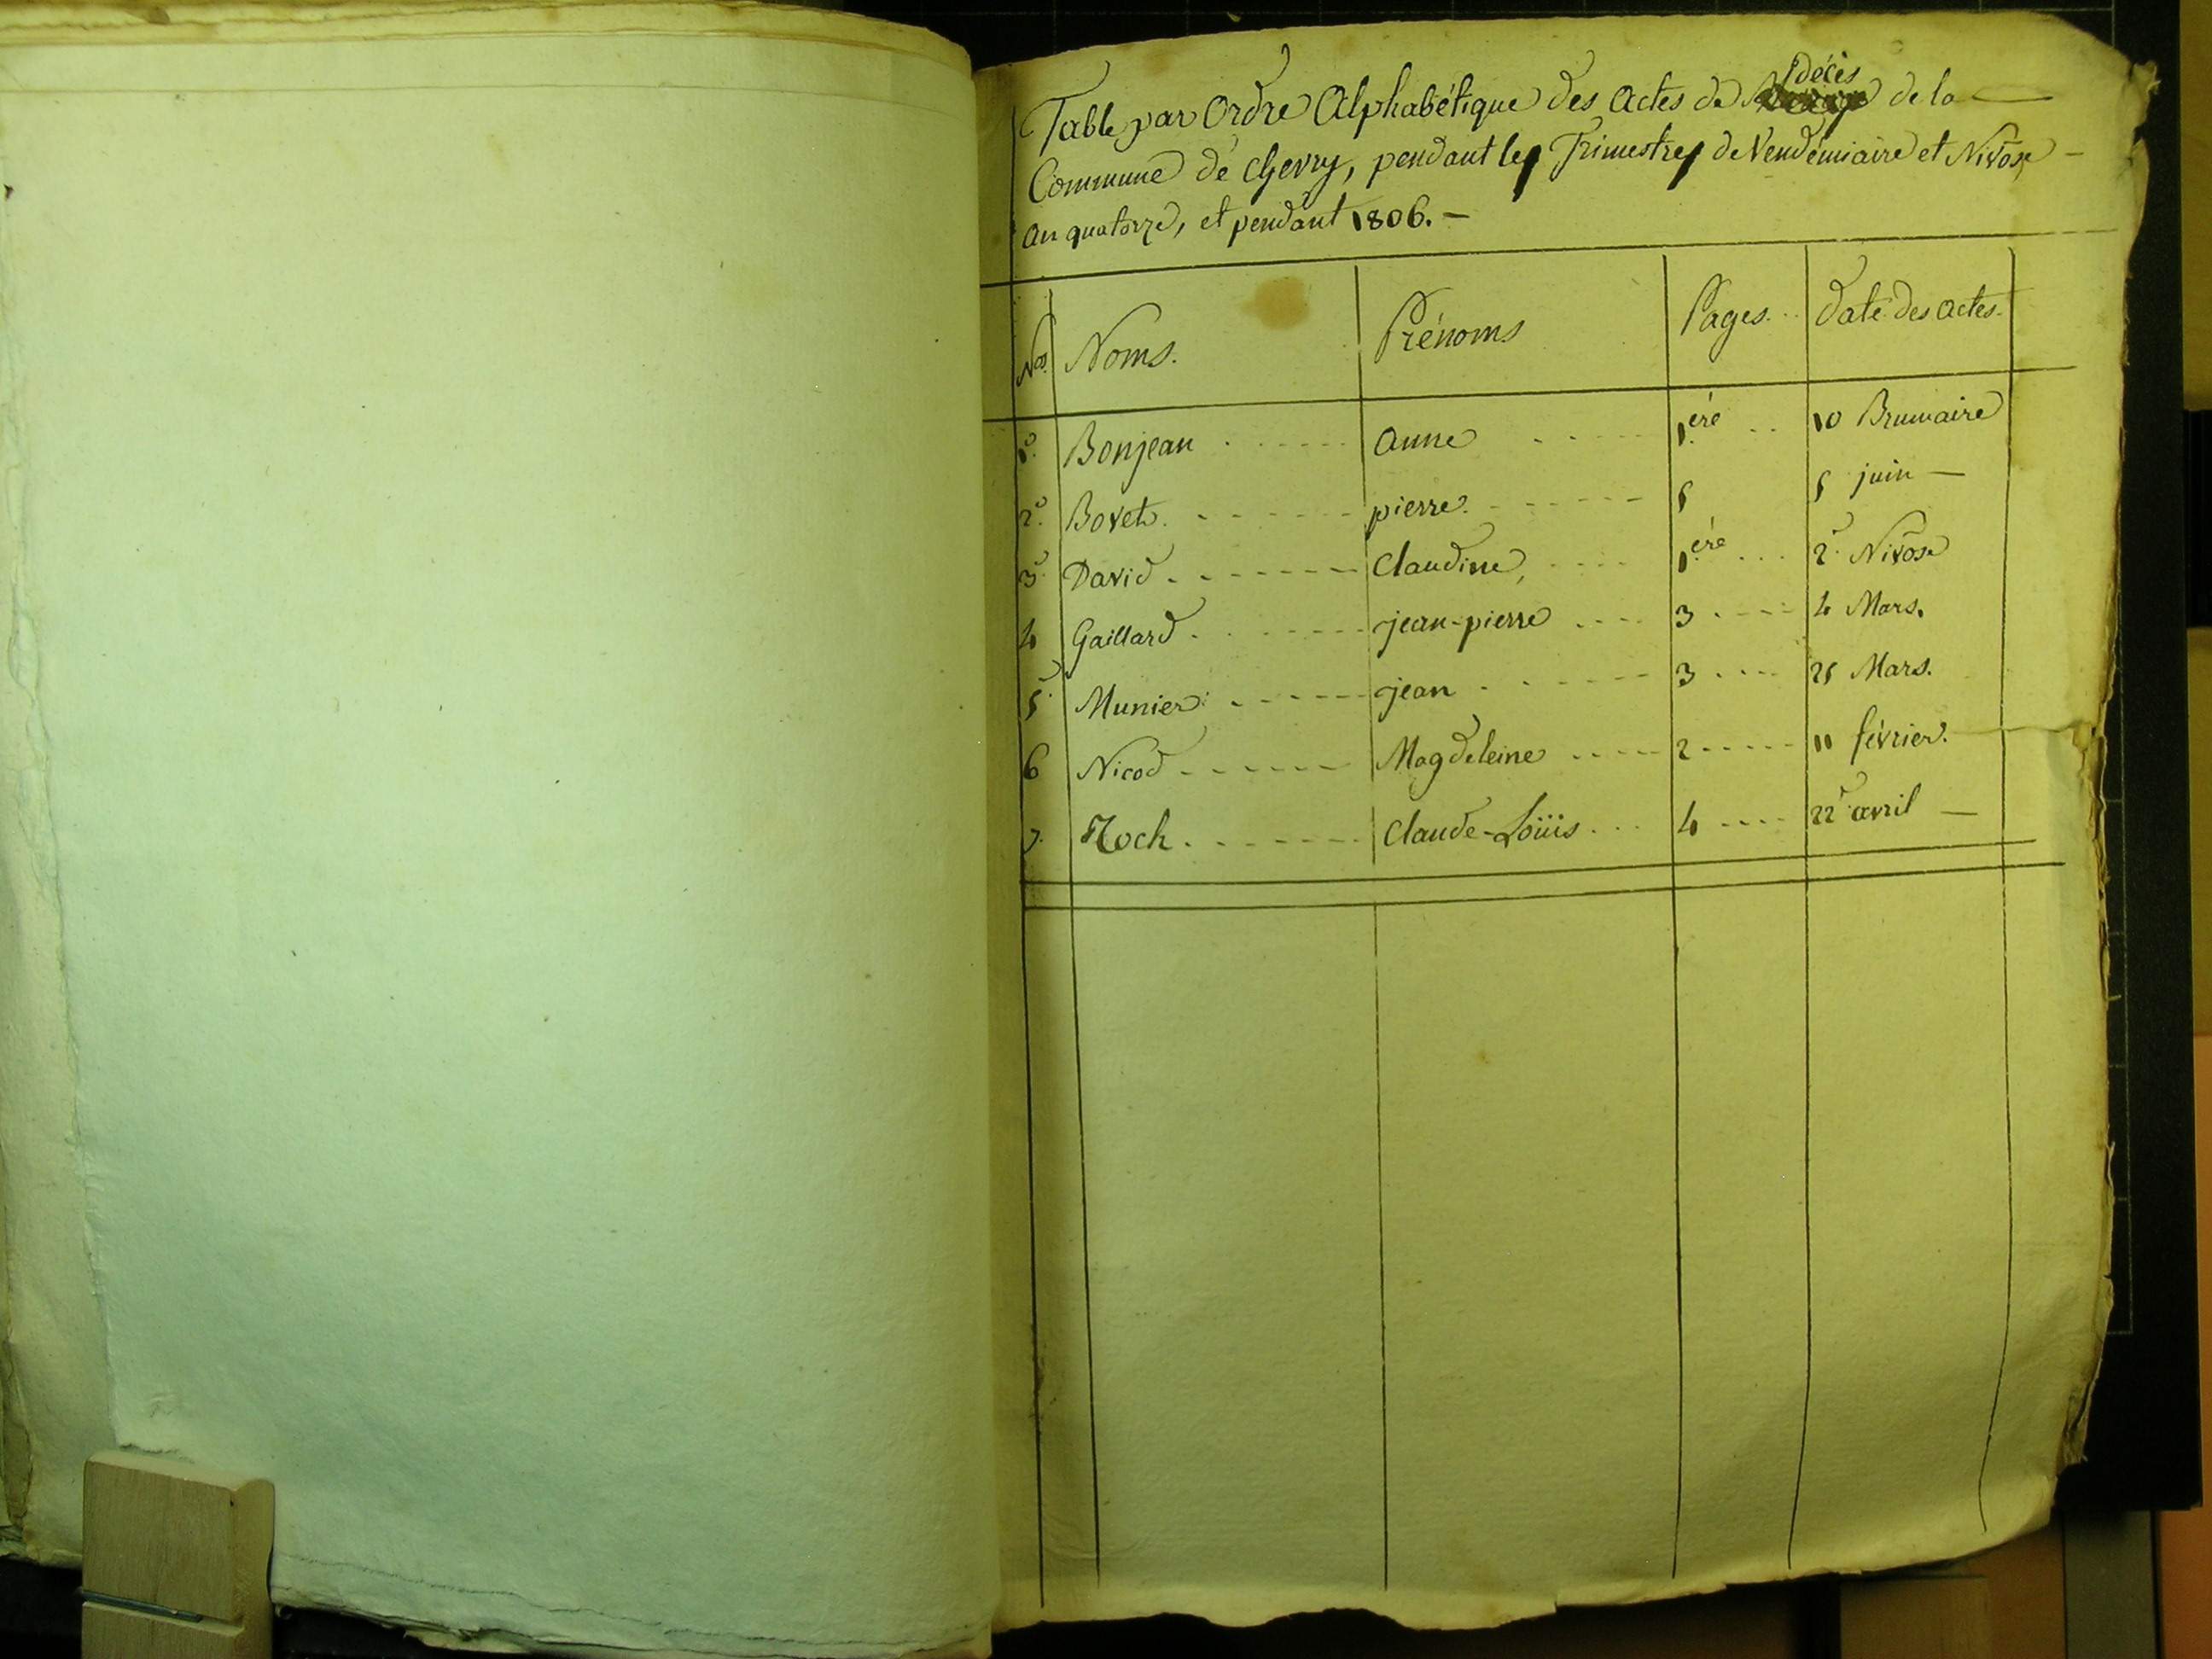 Table par Ordre Alphabétique des Actes de décès de la
Commune de Chevry, pendant les Trimestres de Vendémiaire et Nivôse
an quatorze, et pendant 1806.
Nos. Noms. Prénoms Pages. Date des actes.
1° Bonjean Anne 1ere 10 Brumaire
2° Bovet pierre 5 5 juin
3° David Claudine, 1ere 2 Nivôse
4 Gaillard jean-pierre 3 4 Mars.
5 Munier jean 3 25 Mars.
6 Nicod Magdeleine 2 11 février.
7. Roch Claude-Loüis 4 22 avril